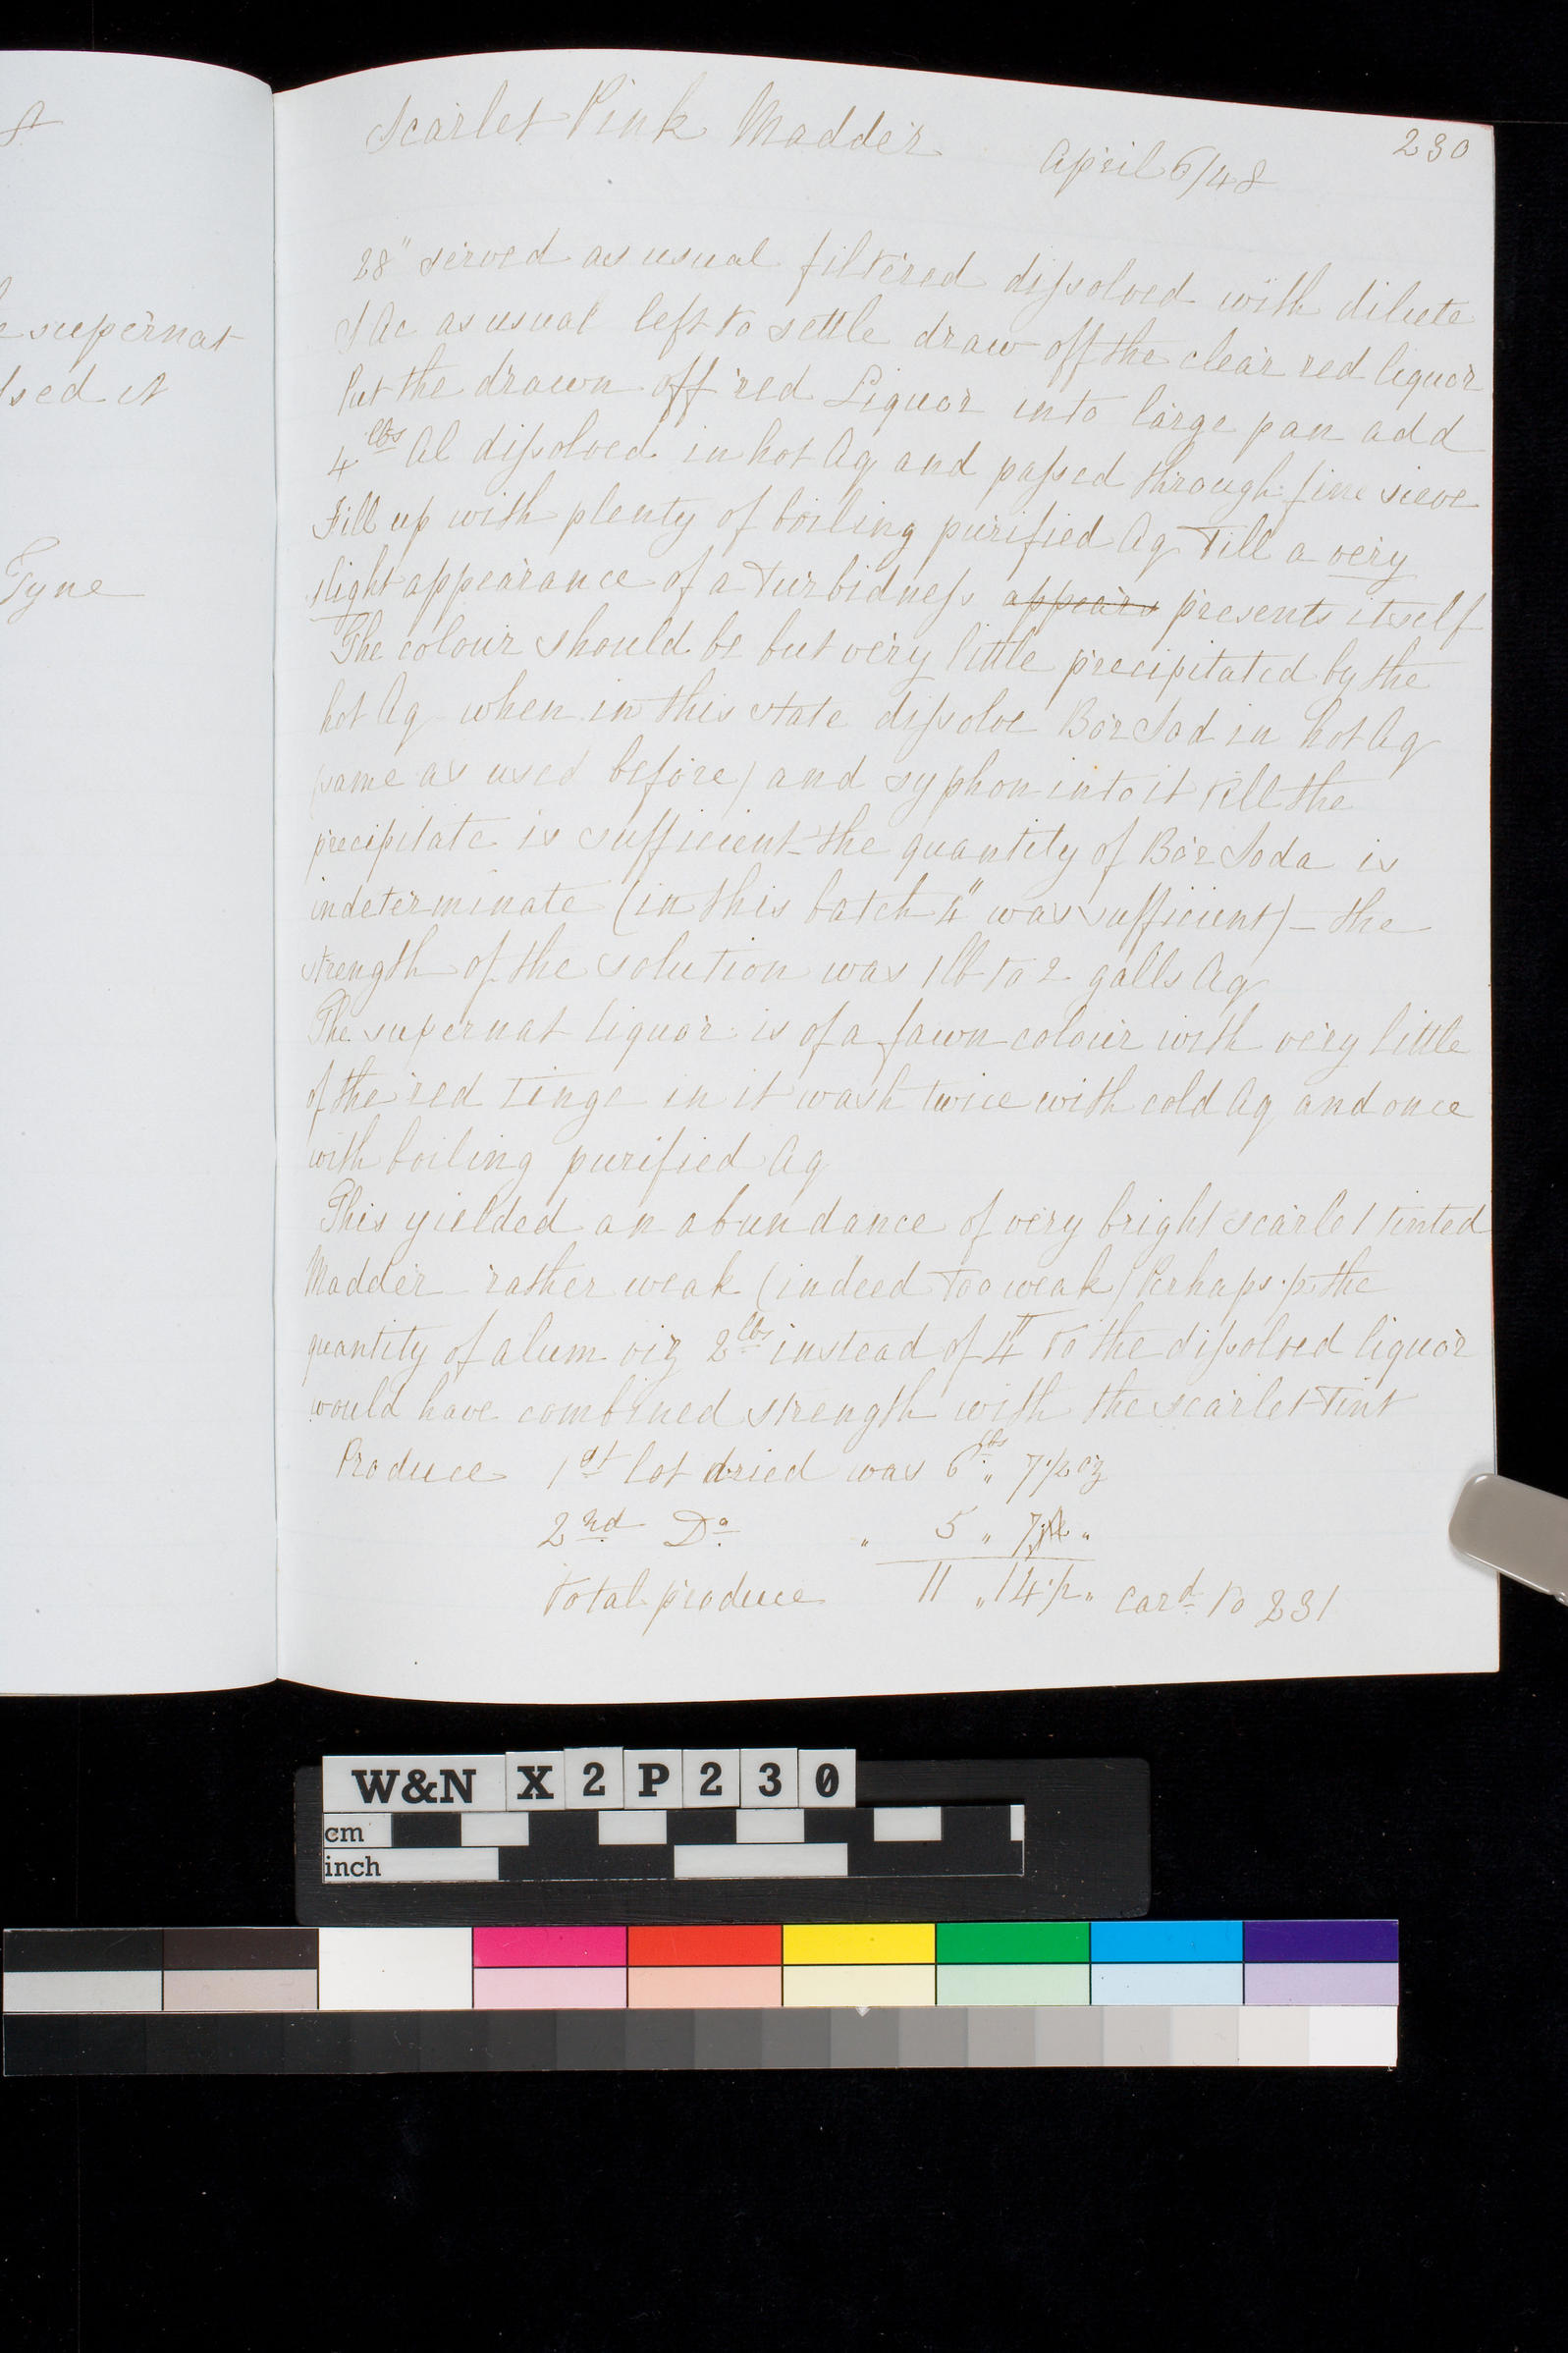 Scarlet Pink Madder
April 6/48
230
28" served as usual filtered dissolved with dilute
SAc as usual left to settle draw off the clear red liquor
Put the drawn off red Liquor into large pan add
4 lbs Al dissolved in hot Aq and passed through fine sieve
Fill up with plenty of boiling purified Aq Till a very
slight appearance of a Turbidness appears presents itself
The colour should be but very little precipitated by the
hot Aq when in this state dissolve Bor Sod in hot Aq
(same as used before) and syphon into it till the
precipitate is sufficient - the quantity of Bor Soda is
indeterminate (in this batch 4" was sufficient) - the
strength of the solution was 1 lb to 2 galls Aq
The supernat liquor is of a fawn colour with very little
of the red tinge in it wash twice with cold Aq and once
with boiling purified Aq
This yielded an abundance of very bright scarlet tinted
Madder rather weak (indeed too weak) Perhaps the
quantity of alum viz 2 lbs instead of 4 to the dissolved liquor
would have combined strength with the scarlet Tint
Produce 1st lot dried was 6 lbs " 7 1/2 oz
2nd Do " 5 " 7 "
Total produce 11 " 14 1/2 " card to 231
e supernat
sed it
Tyne
W&N X2P230
cm
inch